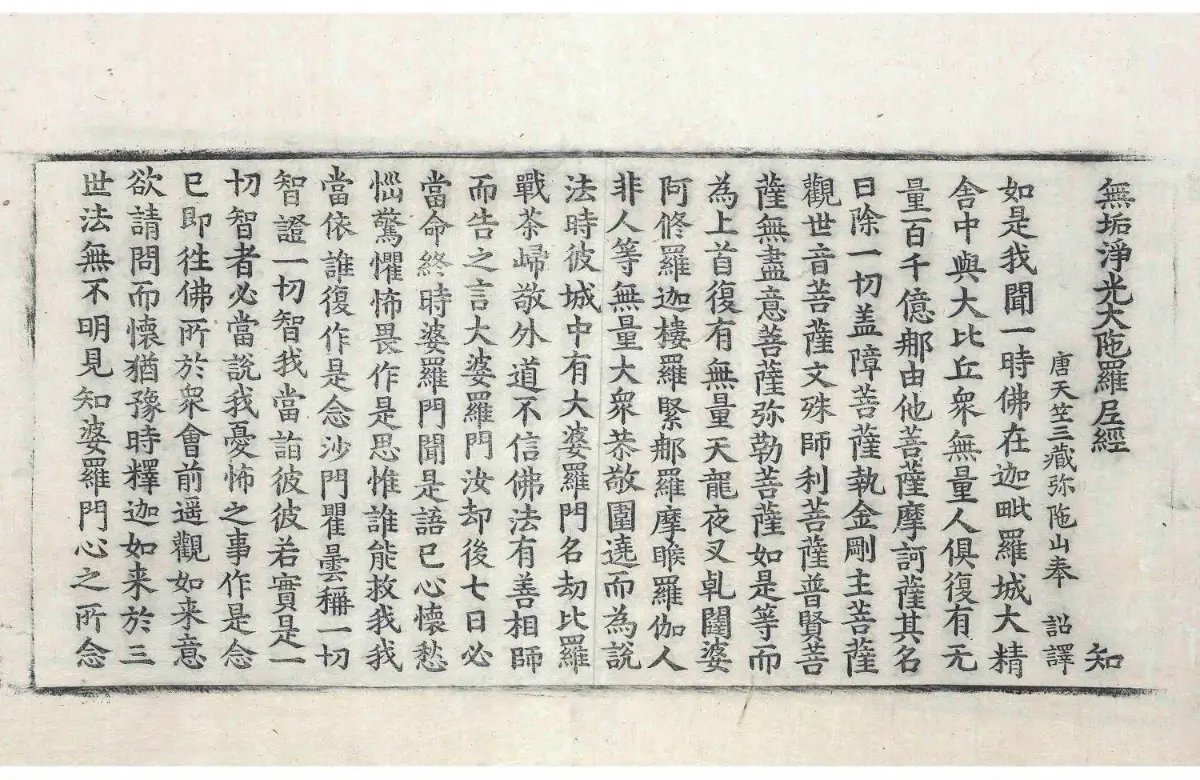 無垢淨光大陁羅尼經 知
唐天竺三藏弥陁山奉 詔譯
如是我聞一時佛在迦毗羅城大精
舍中與大比丘衆無量人俱復有无
量百千億那由他菩薩摩訶薩其名
曰除一切盖障菩薩執金剛主菩薩
觀世音菩薩文殊師利菩薩普賢菩
薩無盡意菩薩弥勒菩薩如是等而
為上首復有無量天龍夜叉乹闥婆
阿修羅迦樓羅緊那羅摩睺羅伽人
非人等無量大衆恭敬圍遶而為說
法時彼城中有大婆羅門名劫比羅
戰茶歸敬外道不信佛法有善相師
而告之言大婆羅門汝却後七日必
當命終時婆羅門聞是語已心懷愁
惱驚懼怖畏作是思惟誰能救我我
當依誰復作是念沙門瞿曇稱一切
智證一切智我當詣彼彼若實是一
切智者必當說我憂怖之事作是念
已即往佛所於衆會前遥觀如来意
欲請問而懷猶豫時釋迦如来於三
世法無不明見知婆羅門心之所念